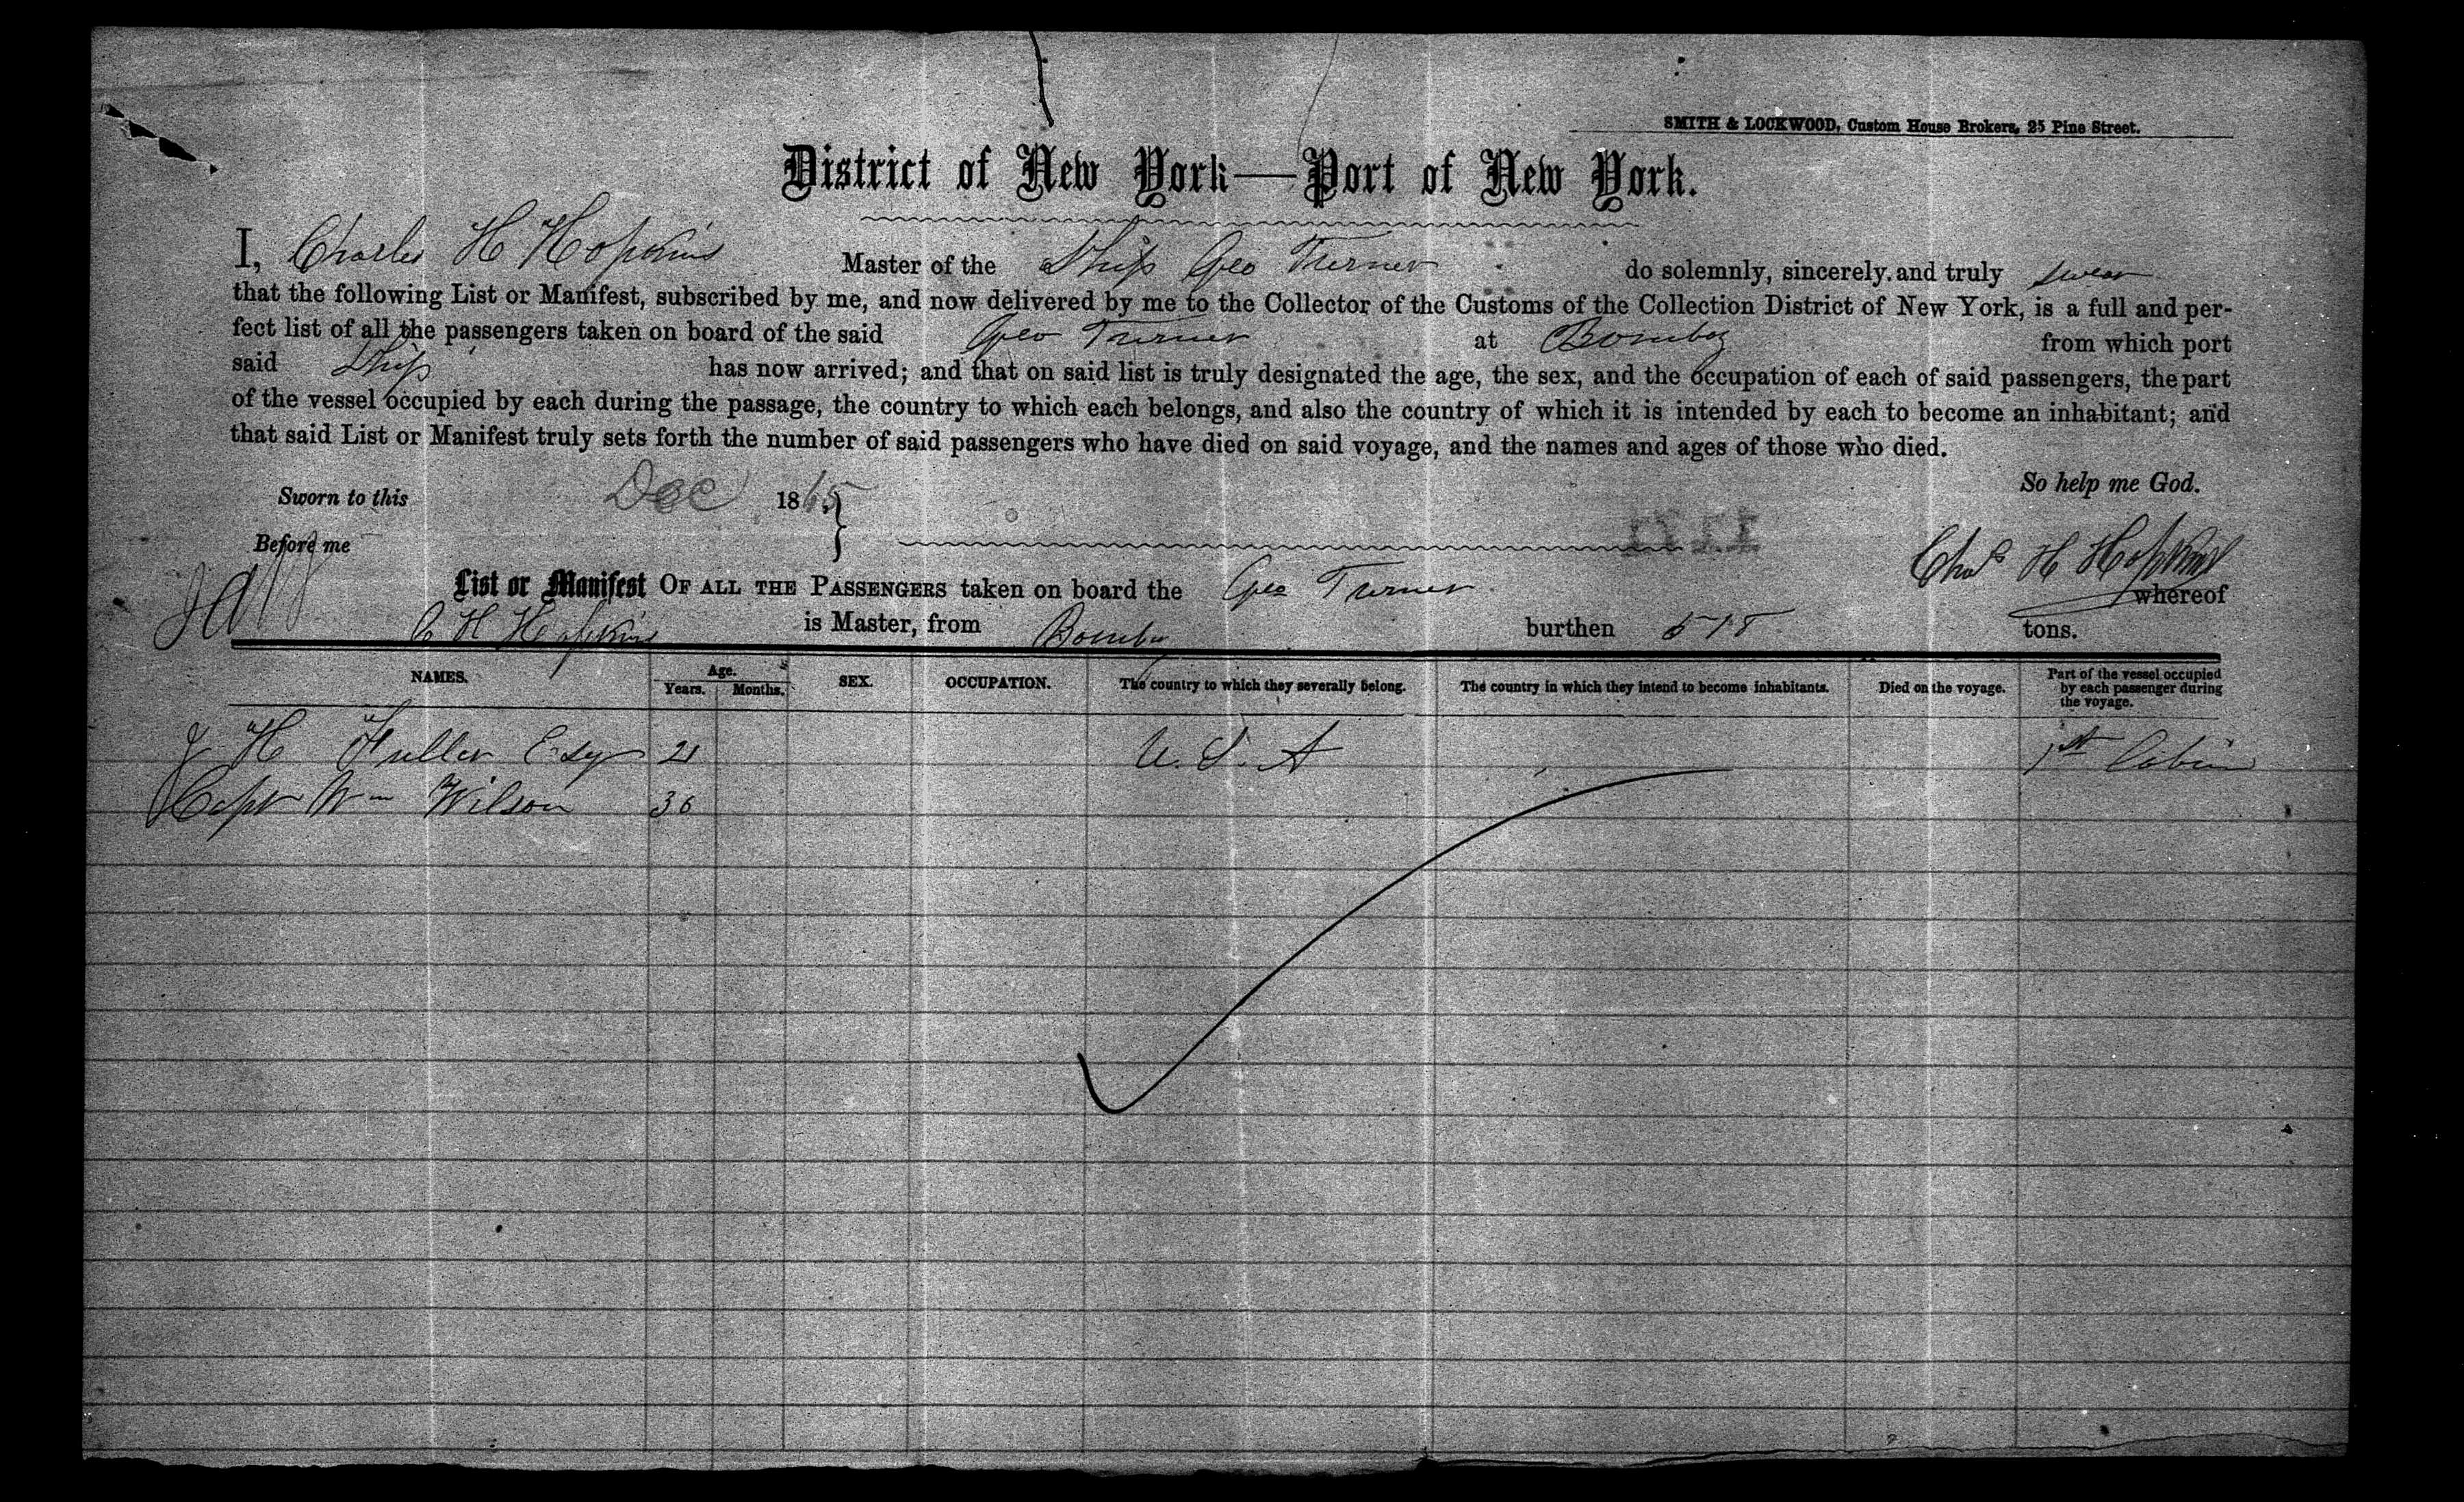 SMITH & LOCKWOOD, Custom House Brokers, 25 Pine Street.
District of New York—Port of New York.
I, Charles H Hopkins Master of the Ship Geo Turner do solemnly, sincerely and truly swear
that the following List or Manifest, subscribed by me, and now delivered by me to the Collector of the Customs of the Collection District of New York, is a full and per-
fect list of all the passengers taken on board of the said Geo Turner at Bombay from which port
said Ship has now arrived; and that on said list is truly designated the age, the sex, and the occupation of each of said passengers, the part
of the vessel occupied by each during the passage, the country to which each belongs, and also the country of which it is intended by each to become an inhabitant; and
that said List or Manifest truly sets forth the number of said passengers who have died on said voyage, and the names and ages of those who died.
So help me God.
Sworn to this Dec 1865
Before me
Chas H Hopkins
List or Manifest OF ALL THE PASSENGERS taken on board the Geo Turner whereof
C H Hopkins is Master, from Bombay burthen tons.
NAMES. Age. Years. Months. SEX. OCCUPATION. The country to which they severally belong. The country in which they intend to become inhabitants. Died on the voyage. Part of the vessel occupied by each passenger during the voyage.
J H Fuller Esq 21 U. S. A 1st Cabin
Capt Wm Wilson 36